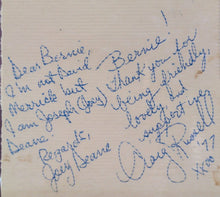 Dear Bernie,
I'm not David
Merrick but
I am Joseph (Joey)
Deane.
Regards,
Joey Deane
Bernie!
Thank you for
being friendly,
lovely, but
Craig Russell
'77